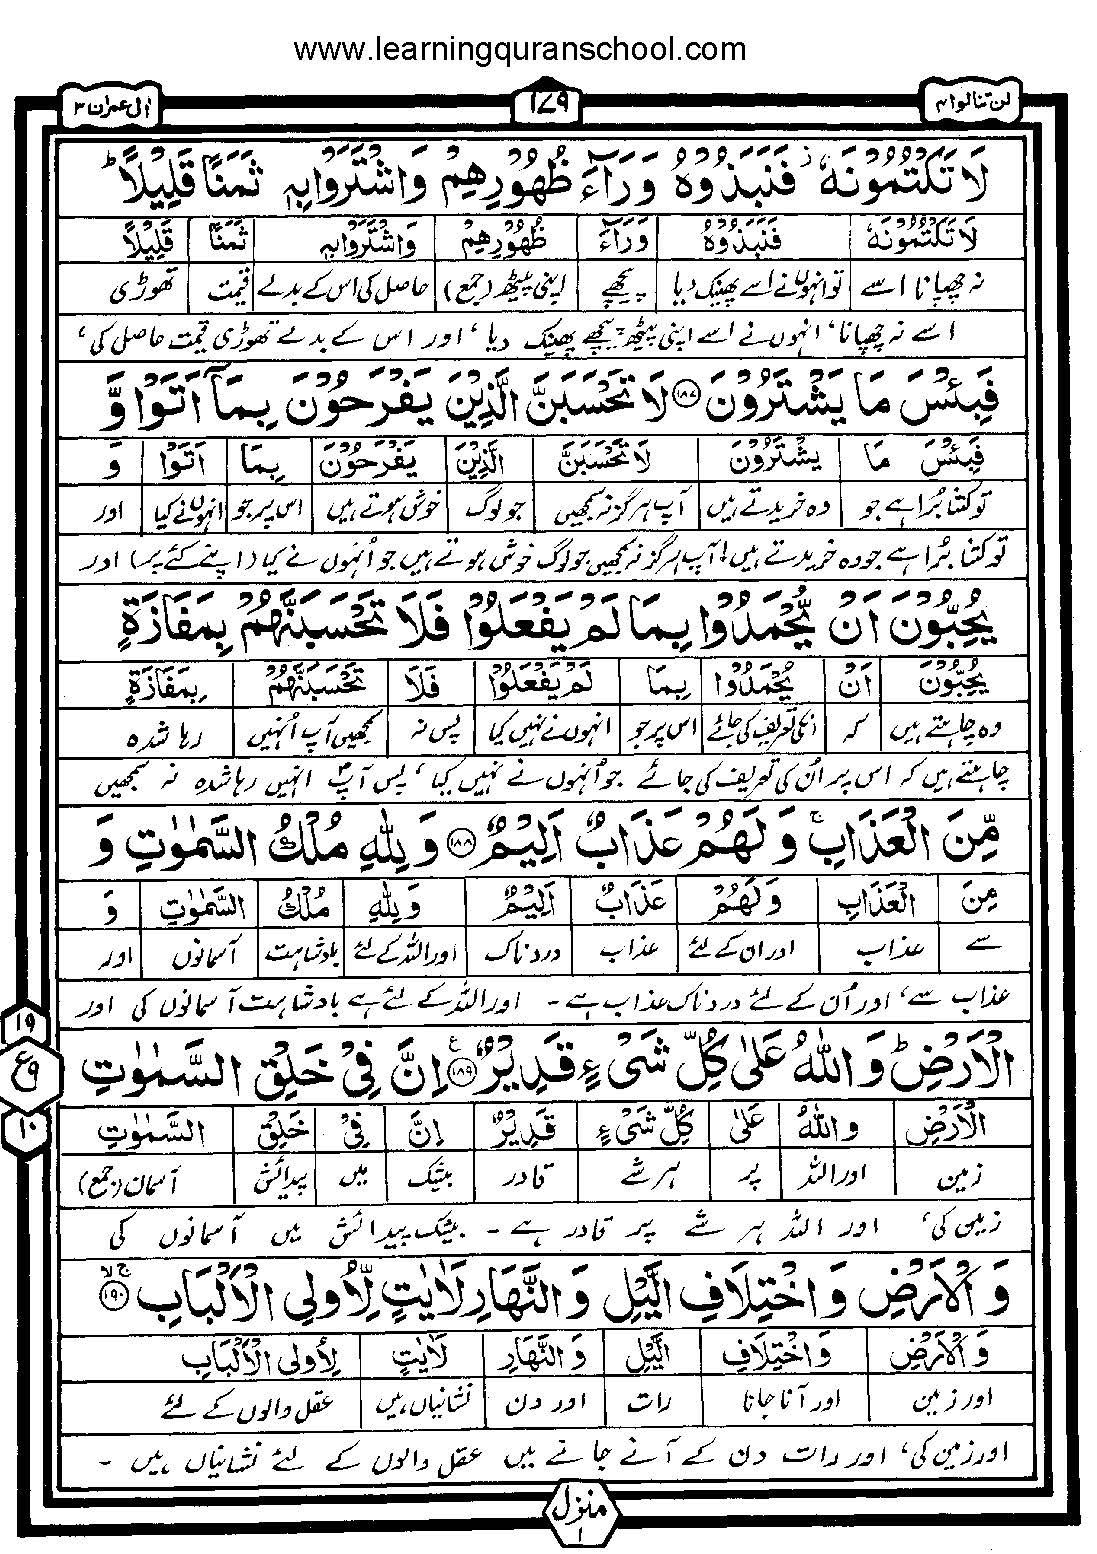 www.learningquranschool.com
لن تنالوا ۴ ۱۷۹ اٰل عمران ۳
لَا تَكْتُمُوْنَهٗ فَنَبَذُوْهُ وَرَآءَ ظُهُوْرِهِمْ وَاشْتَرَوْا بِهٖ ثَمَنًا قَلِيْلًا ؕ
لَا تَكْتُمُوْنَهٗ فَنَبَذُوْهُ وَرَآءَ ظُهُوْرِهِمْ وَاشْتَرَوْا بِهٖ ثَمَنًا قَلِيْلًا
نہ چھپانا اسے تو انہوں نے اسے پھینک دیا پیچھے اپنی پیٹھ (جمع) حاصل کی اس کے بدلے قیمت تھوڑی
اسے نہ چھپانا، انہوں نے اسے اپنی پیٹھ پیچھے پھینک دیا، اور اس کے بدلے تھوڑی قیمت حاصل کی،
فَبِئْسَ مَا يَشْتَرُوْنَ ۱۸۷ لَا تَحْسَبَنَّ الَّذِيْنَ يَفْرَحُوْنَ بِمَآ اَتَوْا وَّ
فَبِئْسَ مَا يَشْتَرُوْنَ لَا تَحْسَبَنَّ الَّذِيْنَ يَفْرَحُوْنَ بِمَا اَتَوْا وَ
تو کتنا بُرا ہے جو وہ خریدتے ہیں آپ ہرگز نہ سمجھیں جو لوگ خوش ہوتے ہیں اس پر جو انہوں نے کیا اور
تو کتنا بُرا ہے جو وہ خریدتے ہیں! آپ ہرگز نہ سمجھیں جو لوگ خوش ہوتے ہیں جو اُنہوں نے کیا (اپنے کئے پر) اور
يُحِبُّوْنَ اَنْ يُّحْمَدُوْا بِمَا لَمْ يَفْعَلُوْا فَلَا تَحْسَبَنَّهُمْ بِمَفَازَةٍ
يُحِبُّوْنَ اَنْ يُحْمَدُوْا بِمَا لَمْ يَفْعَلُوْا فَلَا تَحْسَبَنَّهُمْ بِمَفَازَةٍ
وہ چاہتے ہیں کہ انکی تعریف کی جائے اس پر جو انہوں نے نہیں کیا پس نہ سمجھیں آپ اُنہیں رہا شدہ
چاہتے ہیں کہ اس پر اُن کی تعریف کی جائے جو اُنہوں نے نہیں کیا، پس آپؐ انہیں رہا شدہ نہ سمجھیں
مِّنَ الْعَذَابِ ۚ وَلَهُمْ عَذَابٌ اَلِيْمٌ ۱۸۸ وَلِلّٰهِ مُلْكُ السَّمٰوٰتِ وَ
مِنَ الْعَذَابِ وَلَهُمْ عَذَابٌ اَلِيْمٌ وَلِلّٰهِ مُلْكُ السَّمٰوٰتِ وَ
سے عذاب اور ان کے لئے عذاب دردناک اور اللہ کے لئے بادشاہت آسمانوں اور
عذاب سے، اور اُن کے لئے دردناک عذاب ہے ۔ اور اللہ کے لئے ہے بادشاہت آسمانوں کی اور
۱۹
ع ۹
۱۰
الْاَرْضِ ؕ وَاللّٰهُ عَلٰى كُلِّ شَىْءٍ قَدِيْرٌ ۱۸۹ اِنَّ فِىْ خَلْقِ السَّمٰوٰتِ
الْاَرْضِ وَاللّٰهُ عَلٰى كُلِّ شَىْءٍ قَدِيْرٌ اِنَّ فِىْ خَلْقِ السَّمٰوٰتِ
زمین اور اللہ پر ہر شے قادر بیشک میں پیدائش آسمان (جمع)
زمین کی، اور اللہ ہر شے پر قادر ہے ۔ بیشک پیدائش میں آسمانوں کی
وَالْاَرْضِ وَاخْتِلَافِ الَّيْلِ وَالنَّهَارِ لَاٰيٰتٍ لِّاُولِى الْاَلْبَابِ ۱۹۰
وَالْاَرْضِ وَاخْتِلَافِ الَّيْلِ وَالنَّهَارِ لَاٰيٰتٍ لِاُولِى الْاَلْبَابِ
اور زمین اور آنا جانا رات اور دن نشانیاں ہیں عقل والوں کے لئے
اور زمین کی، اور رات دن کے آنے جانے میں عقل والوں کے لئے نشانیاں ہیں ۔
منزل ۱